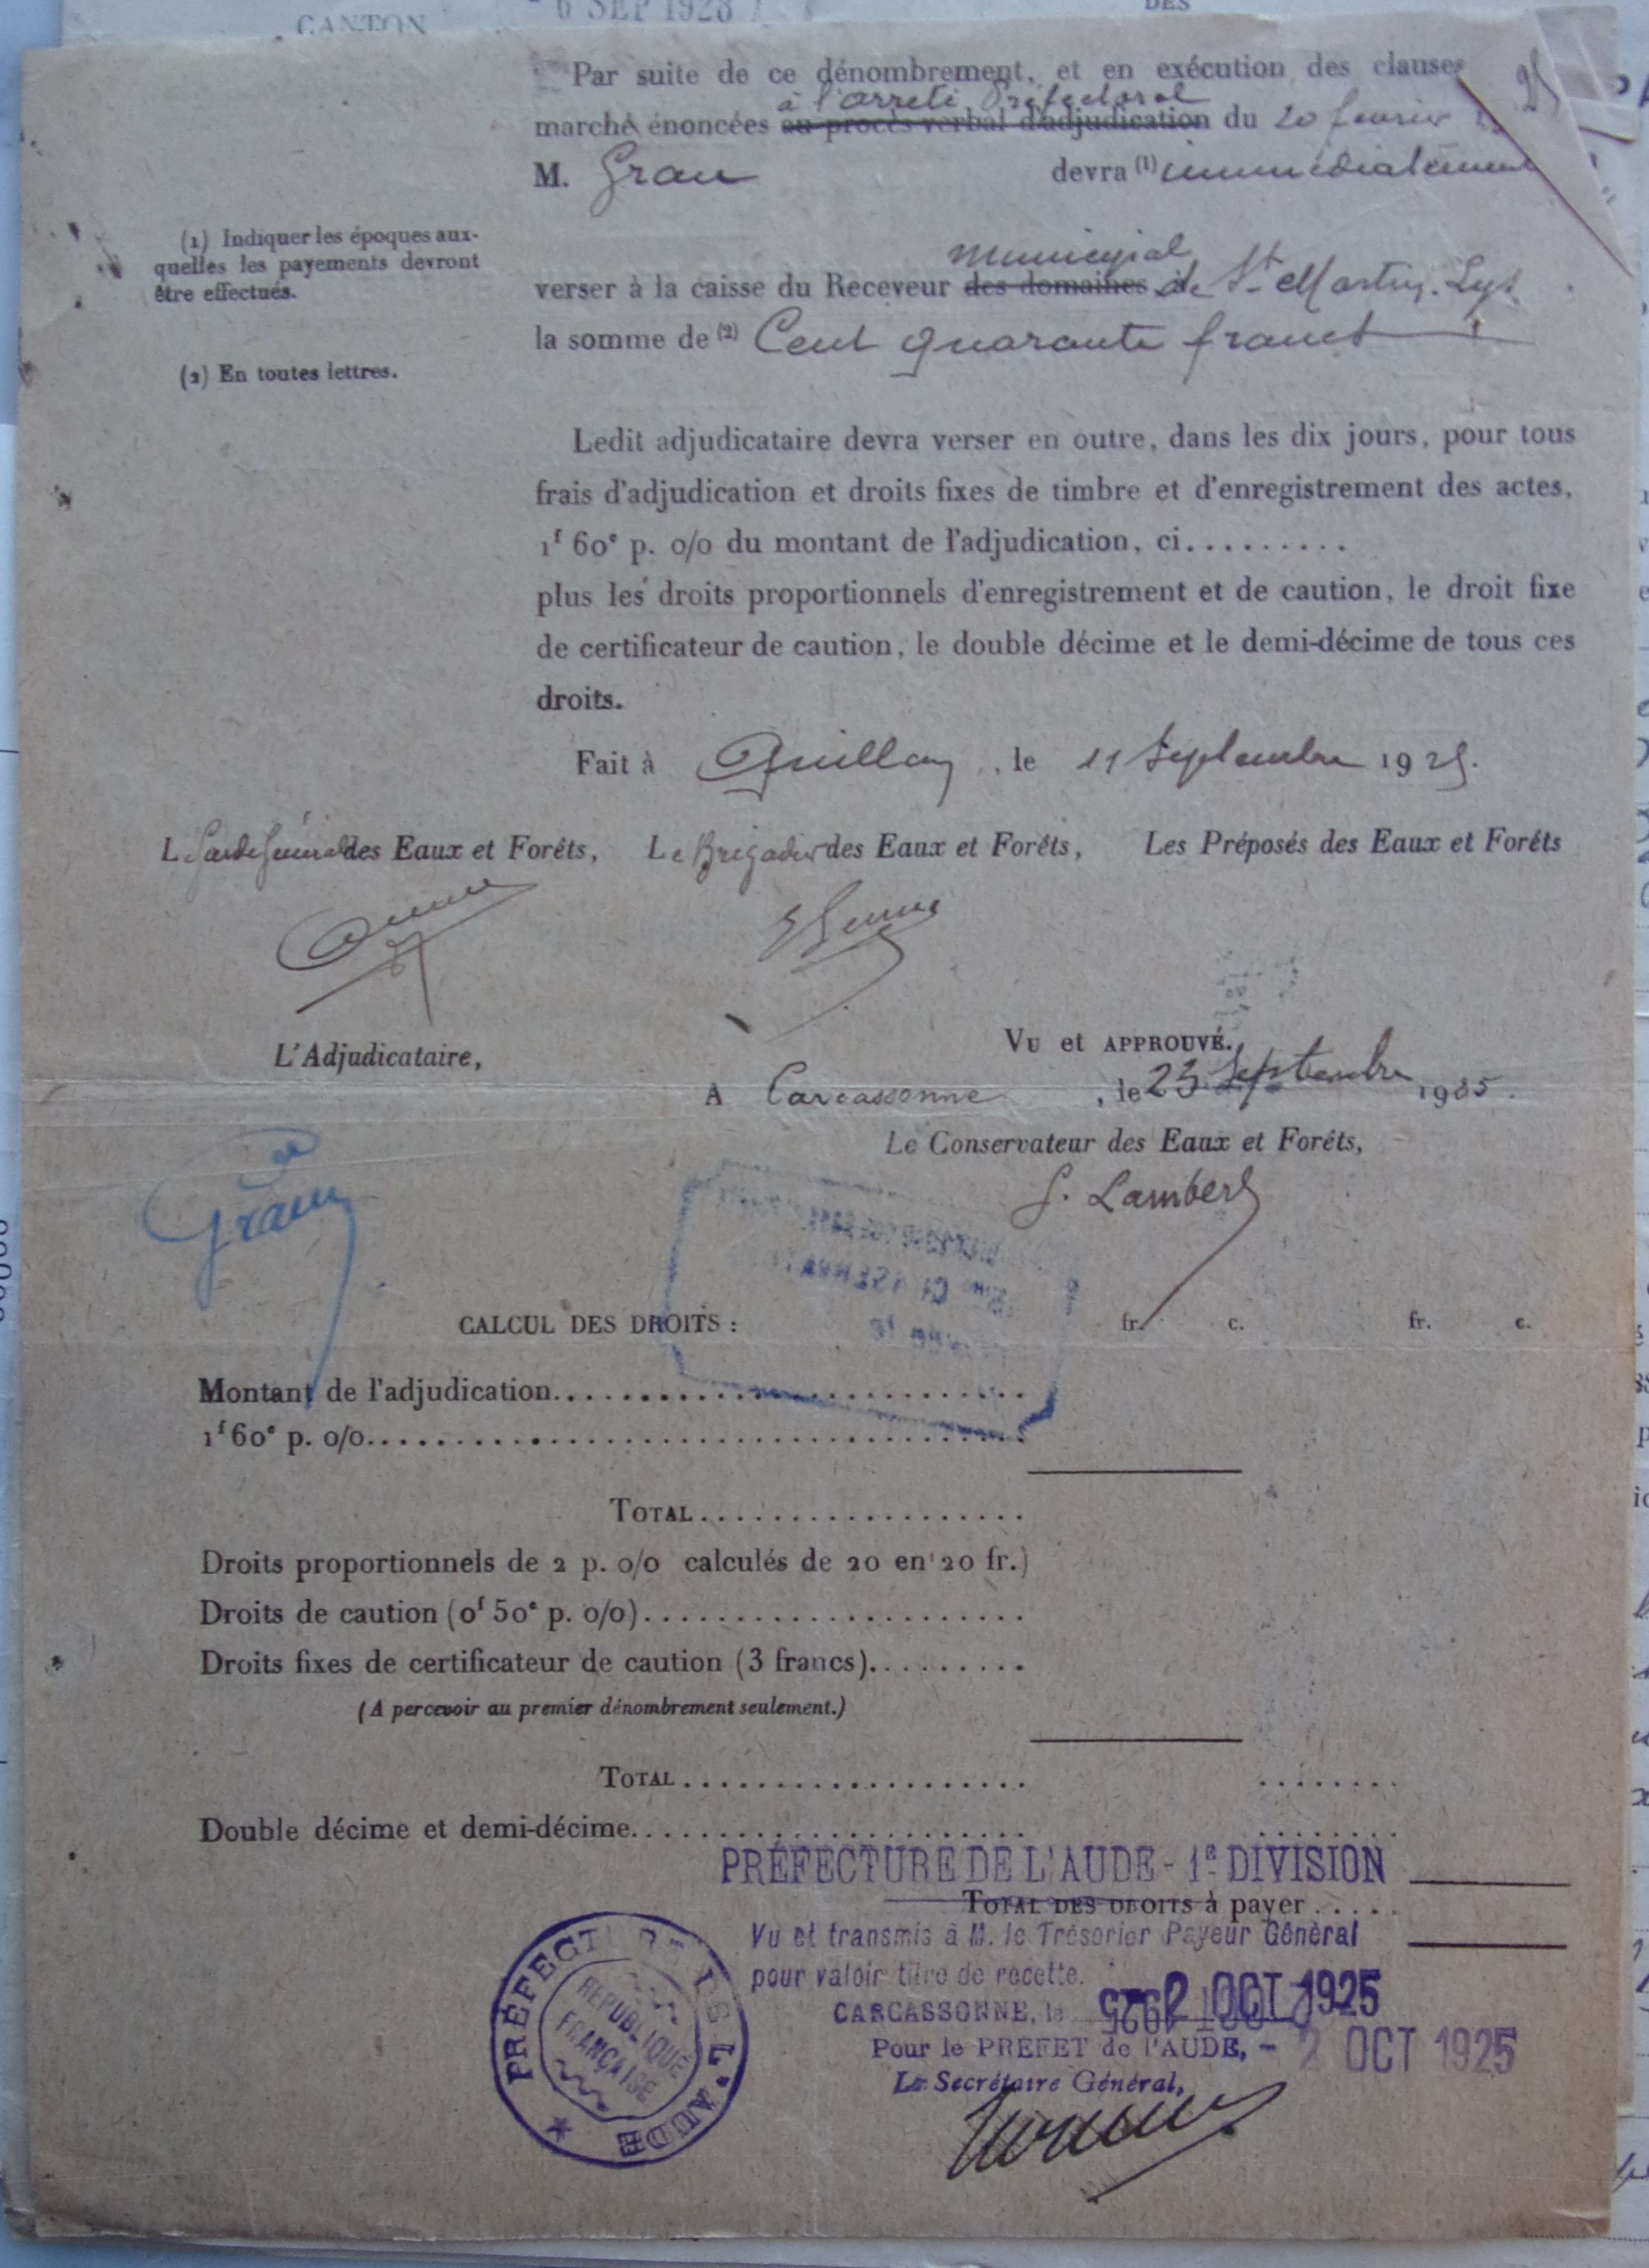 CANTON
6 SEP 1928
DES
Par suite de ce dénombrement, et en exécution des clauses
à l'arrêté Préfectoral
marché énoncées au procès verbal d'adjudication du 20 février
M. Grau devra (1) immédiatement
(1) Indiquer les époques aux-
quelles les payements devront
être effectués.
municipal
verser à la caisse du Receveur des domaines de St Martin-Lys
la somme de (2) Cent quarante francs
(2) En toutes lettres.
Ledit adjudicataire devra verser en outre, dans les dix jours, pour tous
frais d'adjudication et droits fixes de timbre et d'enregistrement des actes,
1f 60c p. 0/0 du montant de l'adjudication, ci.........
plus les droits proportionnels d'enregistrement et de caution, le droit fixe
de certificateur de caution, le double décime et le demi-décime de tous ces
droits.
Fait à Quillan, le 11 Septembre 1925.
Le Garde Général des Eaux et Forêts, Le Brigadier des Eaux et Forêts, Les Préposés des Eaux et Forêts
L'Adjudicataire,
VU et APPROUVÉ.
A Carcassonne, le 23 Septembre 1925.
Le Conservateur des Eaux et Forêts,
Grau
G. Lambert
CALCUL DES DROITS : fr. c. fr. c.
Montant de l'adjudication..........................
1f 60c p. 0/0....................................
TOTAL..................
Droits proportionnels de 2 p. 0/0 calculés de 20 en 20 fr.)
Droits de caution (0f 50c p. 0/0).....................
Droits fixes de certificateur de caution (3 francs).........
(A percevoir au premier dénombrement seulement.)
TOTAL................... ........
Double décime et demi-décime...................... ........
PRÉFECTURE DE L'AUDE - 1e DIVISION
TOTAL DES DROITS à payer .....
Vu et transmis à M. le Trésorier Payeur Général
pour valoir titre de recette.
CARCASSONNE, le 2 OCT 1925
Pour le PREFET de l'AUDE, - 2 OCT 1925
Le Secrétaire Général,
PRÉFECTURE DE L'AUDE
RÉPUBLIQUE
FRANÇAISE